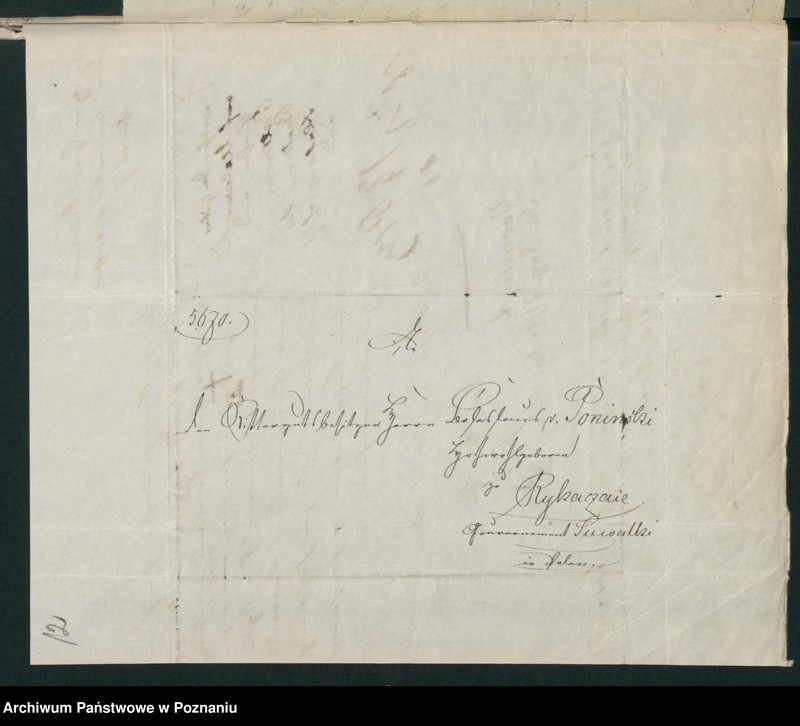 5670.
An
den Rittergutsbesitzer Herrn Boleslaus v. Poninski
Hochwohlgeboren
zu Rykaczaie
Gouvernement Suwalki
in Polen.
12
Archiwum Państwowe w Poznaniu